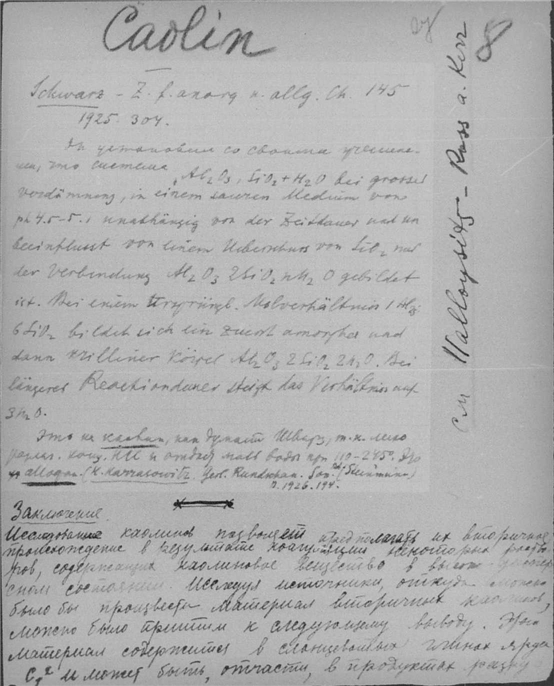 Caolin
8
Schwarz – Z. f. anorg. u. allg. Ch. 145
1925. 304.
установил со своими
что система Al₂O₃, SiO₂ + H₂O bei grosser
Verdünnung, in einem sauren Medium von
ph 4.5–5.1 unabhängig von der Zeitdauer und un
beeinflusst von einem Ueberschuss von SiO₂ nur
der Verbindung Al₂O₃ 2SiO₂ nH₂O gebildet
ist. Bei einem Molverhältniss 1
6 SiO₂ bildet sich ein zuerst amorpher und
dann Körper Al₂O₃ 2SiO₂ 2H₂O. Bei
längerer Reactiondauer steigt das Verhältnis auf
3H₂O.
Это не каолин, как думает Шварц, т.к. легко
конц. HCl и отдает воды при 110–245°. Это
allogan. (K. Karrasowitz. Geol. Rundschau.
1926. 194.
см Halloysits – Ross a. Kerr
Заключение.
Исследование каолинов позволяет предполагать их вторичное
происхождение в результате коагуляции некоторых раство
ров, содержащих каолиновое вещество в
сном состоянии. Исследуя источники, откуда можно
было бы произвести материал вторичных каолинов,
можно было притти к следующему выводу. Этот
материал содержится в сланцеватых глинах
C₁² и может быть, отчасти, в продуктах